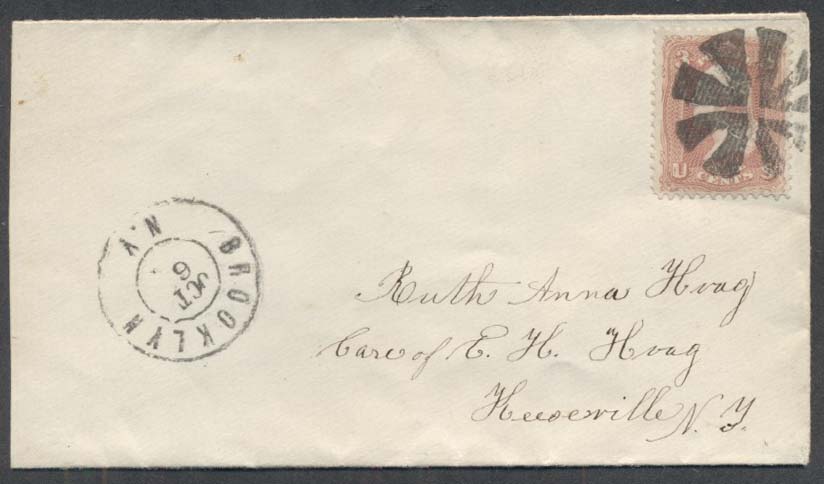 BROOKLYN N.Y.
OCT 6
U CENTS S
Ruth Anna Hoag
Care of E. H. Hoag
N. Y.